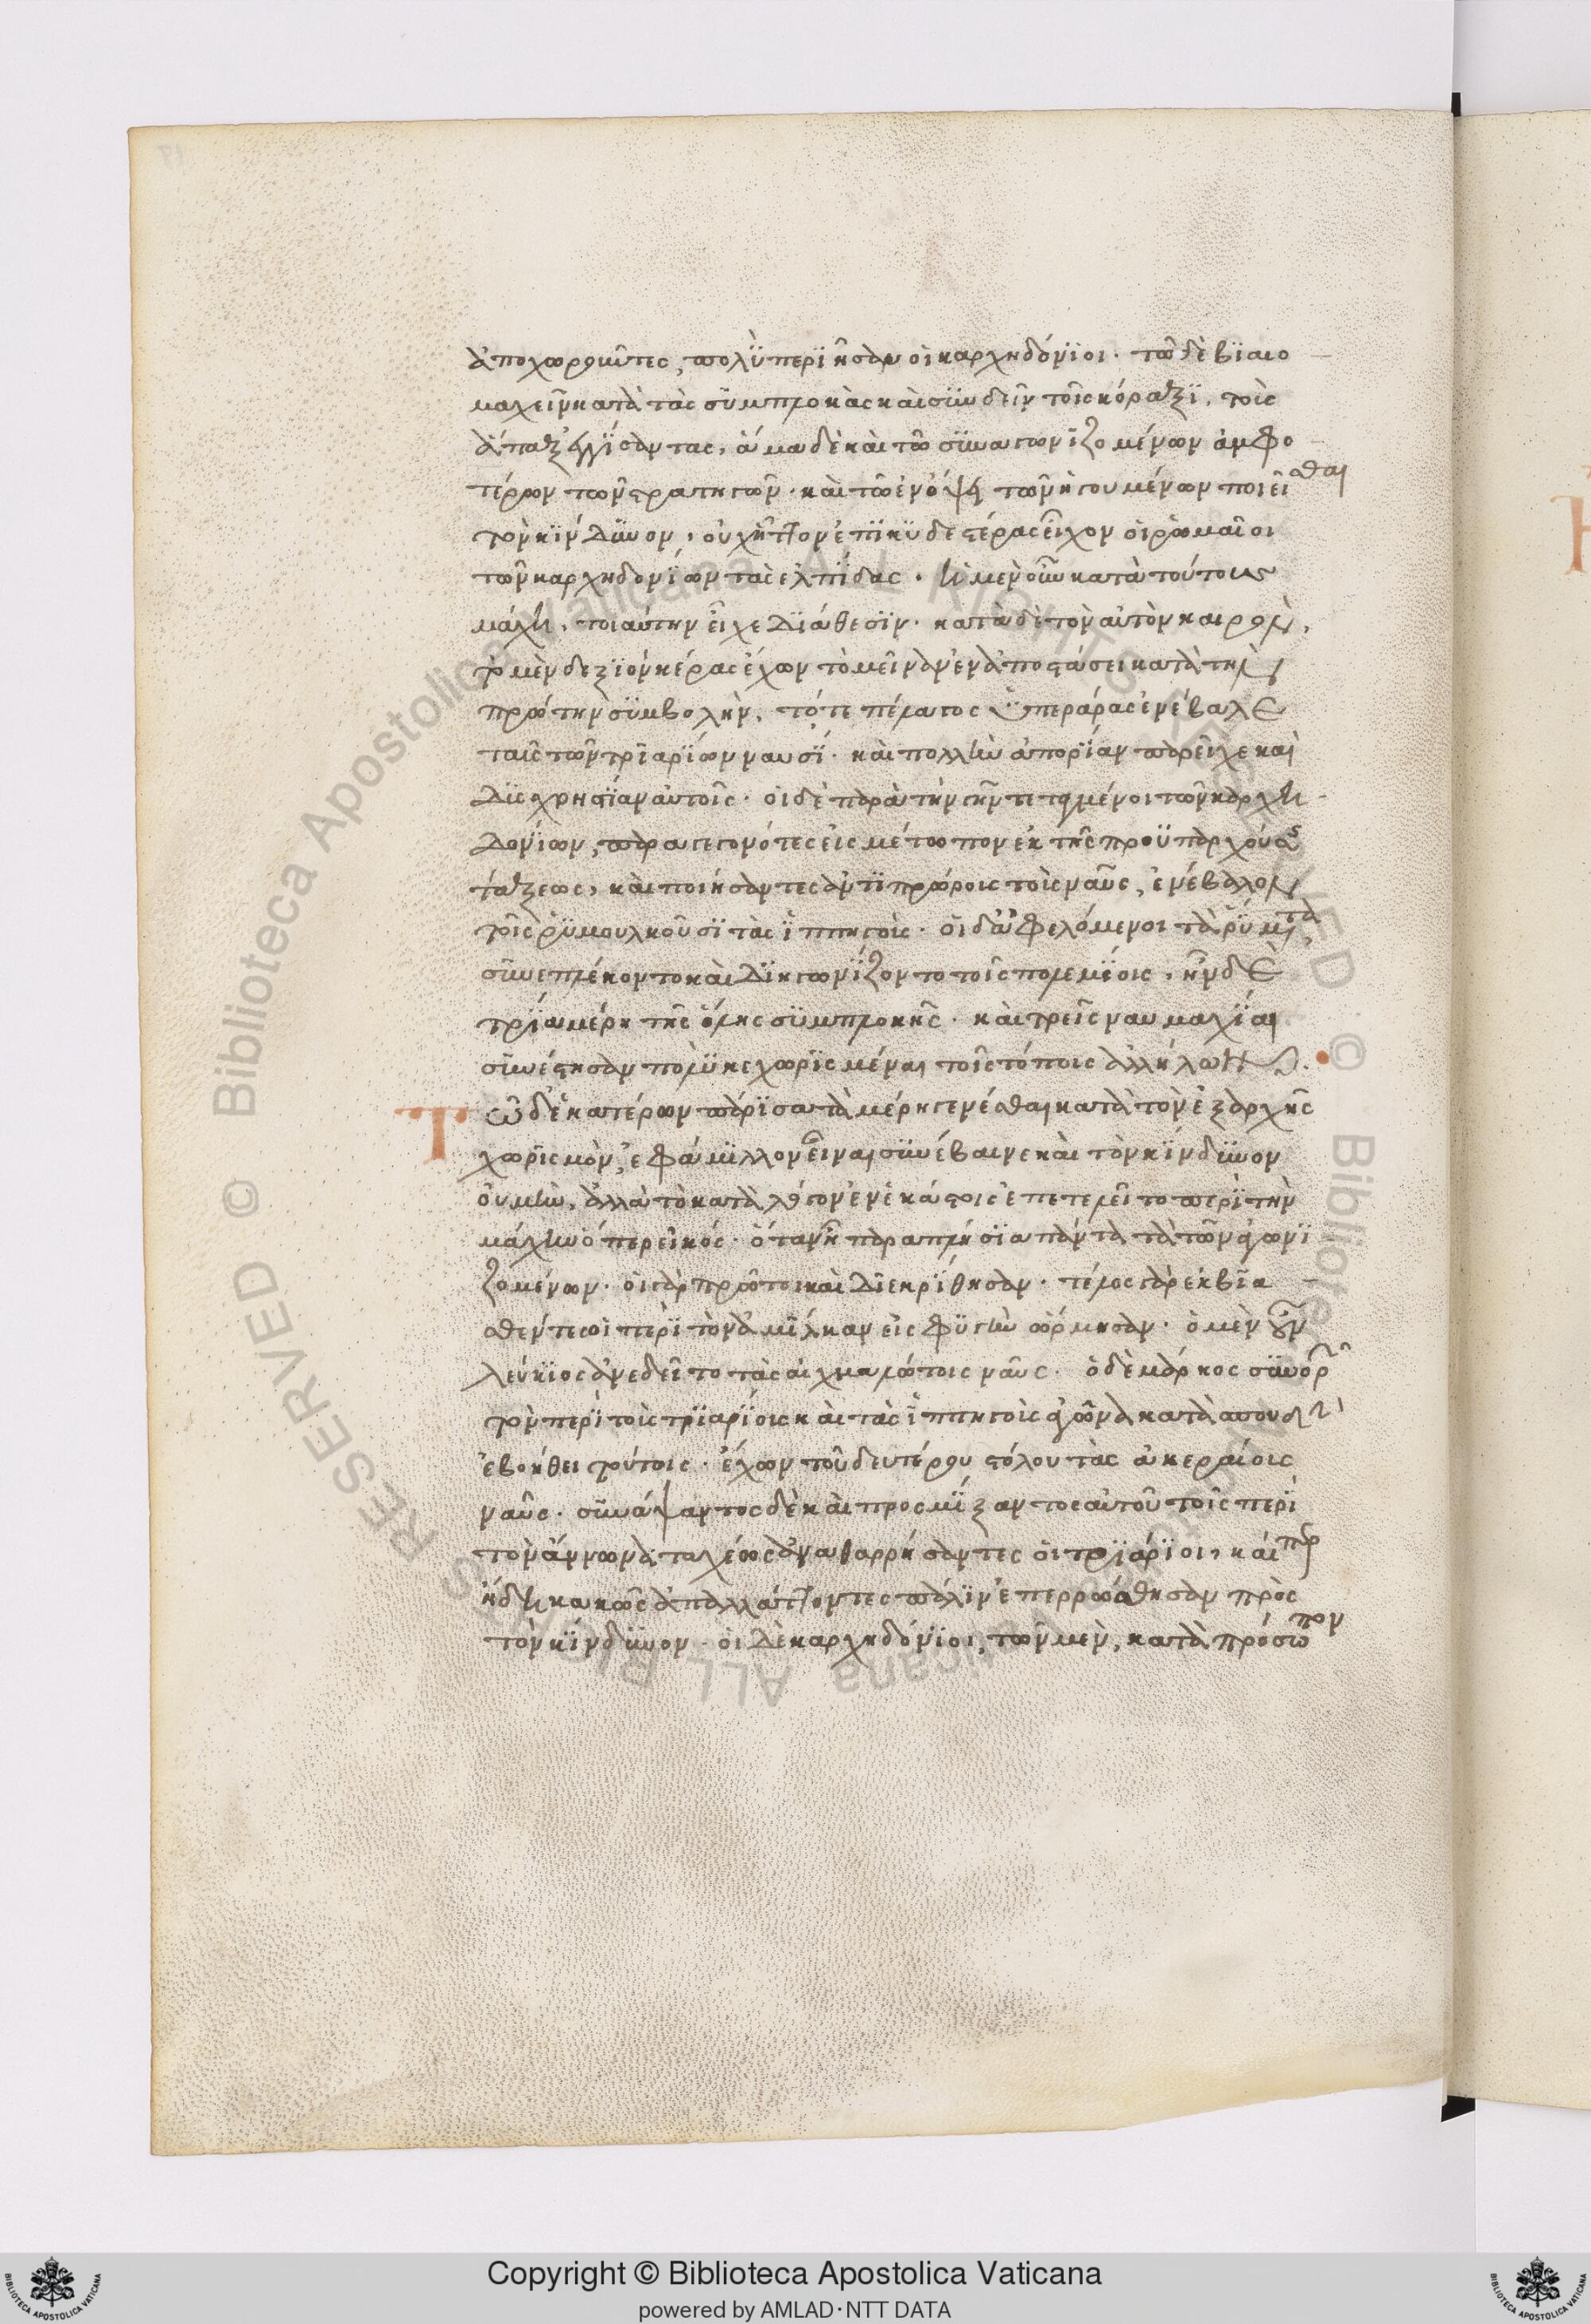 ἀποχωροῦντες, πολὺ περιῆσαν οἱ καρχηδόνιοι· τῶ δὲ βιαιο
μαχεῖν κατὰ τὰς συμπλοκὰς καὶ συνδεῖν τοῖς κόραξι, τοὺς
ἅπαξ ἐγγίσαντας, ἅμα δὲ καὶ τῶ συναγωνιζομένων ἀμφο
τέρων τῶν στρατηγῶν· καὶ τῶ ἐν ὄψει τῶν ἡγουμένων ποιεῖσθαι
τὸν κίνδυνον, οὐχ ἧττον ἐπικυδεστέρας εἶχον οἱ ῥωμαῖοι
τῶν καρχηδονίων τὰς ἐλπίδας. ἡ μὲν οὖν κατὰ τούτους
μάχη, τοιαύτην εἶχε διάθεσιν· κατὰ δὲ τὸν αὐτὸν καιρὸν,
ὁ μὲν δεξιὸν κέρας ἔχων τὸ μεῖναν ἐν ἀποστάσει κατὰ τὴν
πρώτην συμβολὴν, τό, τε πέλαγος ὑπεράρας ἐνέβαλε
ταῖς τῶν τριαρίων ναυσί· καὶ πολλὴν ἀπορίαν παρεῖχε καὶ
δυσχρηστίαν αὐτοῖς· οἱ δὲ παρὰ τὴν γῆν τεταγμένοι τῶν καρχη
δονίων, παραγεγονότες εἰς μέτωπον ἐκ τῆς προϋπαρχούσης
τάξεως, καὶ ποιήσαντες ἀντιπρώρους τὰς ναῦς, ἐνέβαλλον
τοῖς ῥυμουλκοῦσι τὰς ἱππηγούς· οἱ δ' ἀφελόμενοι τὰ ῥύματα
συνεπλέκοντο καὶ διηγωνίζοντο τοῖς πολεμίοις, ἦν δὲ
τρία μέρη τῆς ὅλης συμπλοκῆς· καὶ τρεῖς ναυμαχίαι
συνέστησαν πολὺ κεχωρισμέναι τοῖς τόποις ἀλλήλων.
Τῶ δ' ἑκατέρων πάρισα τὰ μέρη γενέσθαι κατὰ τὸν ἐξαρχῆς
χωρισμὸν, ἐφάμιλλον εἶναι συνέβαινε καὶ τὸν κίνδυνον
οὐ μὴν, ἀλλὰ τὸ κατὰ λόγον ἐν ἑκάστοις ἐπετελεῖτο περὶ τὴν
μάχην ὅπερ εἰκός· ὅταν ἦ παραπλήσια πάντα τὰ τῶν ἀγωνι
ζομένων· οἱ γὰρ πρῶτοι καὶ διεκρίθησαν· τέλος γὰρ ἐκβια
σθέντες οἱ περὶ τὸν ἀμίλκαν εἰς φυγὴν ὥρμησαν· ὁ μὲν οὖν
λεύκιος ἀνεδεῖτο τὰς αἰχμαλώτους ναῦς· ὁ δὲ μάρκος συνορῶν
τὸν περὶ τοὺς τριαρίους καὶ τὰς ἱππηγοὺς ἀγῶνα κατὰ σπουδὴν
ἐβοήθει τούτοις· ἔχων τοῦ δευτέρου στόλου τὰς ἀκεραίους
ναῦς· συνάψαντος δὲ καὶ προσμίξαντος αὐτοῦ τοῖς περὶ
τὸν ἄννωνα, ταχέως ἀναθαρρήσαντες οἱ τριάριοι, καίπερ
ἤδη κακῶς ἀπαλλάττοντες πάλιν ἐπερρώσθησαν πρὸς
τὸν κίνδυνον· οἱ δὲ καρχηδόνιοι, τῶν μὲν, κατὰ πρόσωπον
Copyright © Biblioteca Apostolica Vaticana
powered by AMLAD·NTT DATA